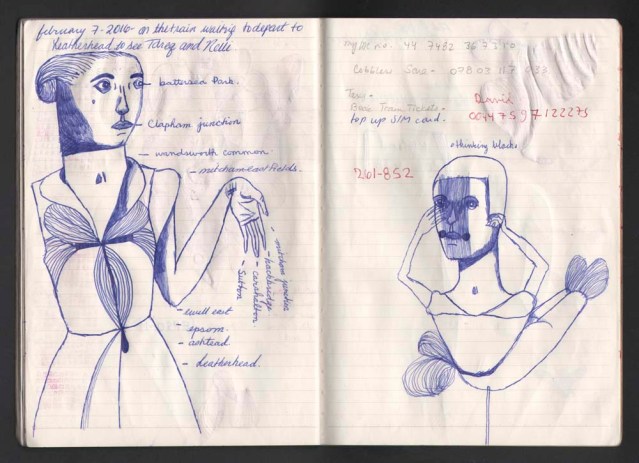 february 7-2016- on the train waiting to depart to
Leatherhead to see Tareq and Nelli
battersea Park.
Clapham junction
wandsworth common.
mitcham east fields.
mitcham junction
hackbridge
carshalton
Sutton
ewell east
epsom.
ashtead
Leatherhead.
no. 44 7482
Cobbler Sore - 07803 117
Taxi -
Train Tickets -
top up SIM card.
David
00447597122275
261-852
thinking blocks